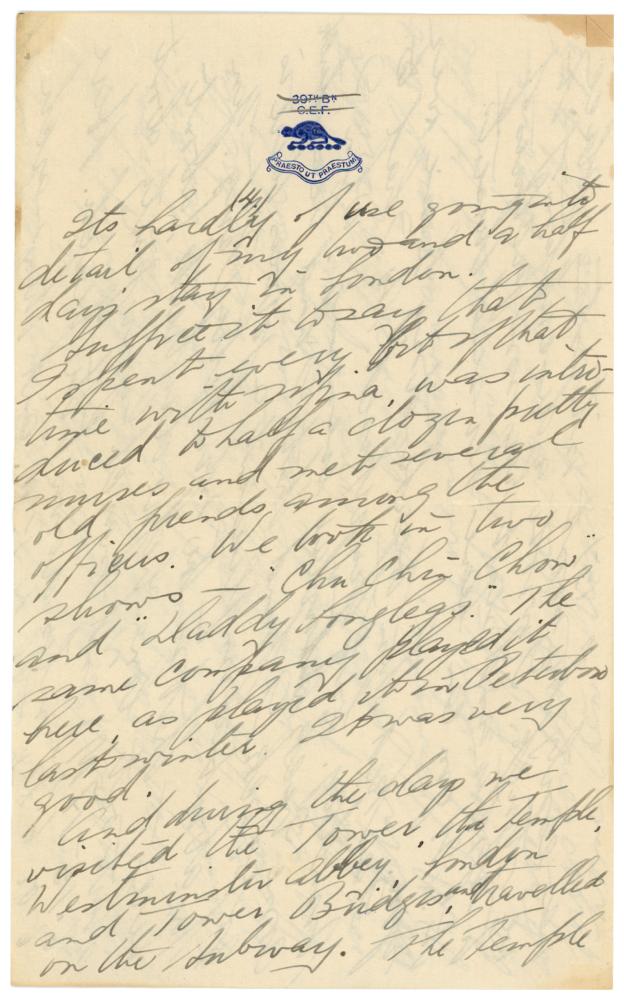 39TH BN
C.E.F.
PRAESTO UT PRAESTUM
14.
Its hardly of use going into
detail of my two and a half
days stay in London.
Suffice it to say that
I spent every bit of that
time with Mina, was intro-
duced to half a dozen pretty
nurses and met several
old friends among the
officers. We took in two
shows - "Chu Chin Chow"
and "Daddy Longlegs." The
same company played it
here, as played it in Peterboro
last winter. It was very
good.
And during the days we
visited the Tower, the Temple,
Westminster Abbey, London
and Tower Bridges, and travelled
on the Subway. The Temple